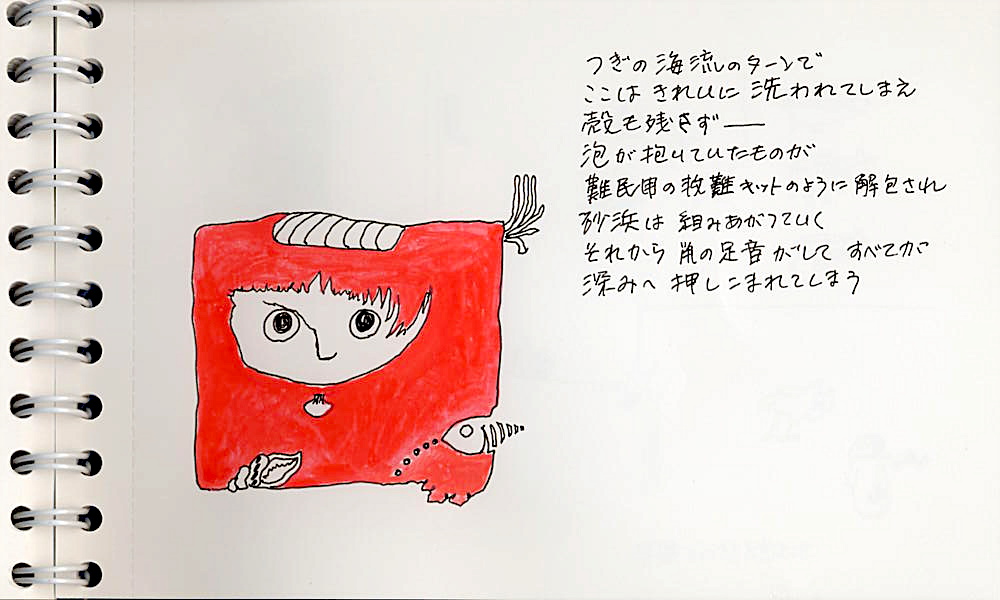 つぎの海流のターンで
ここは きれいに 洗われてしまえ
殻も残さず——
泡が抱いていたものが
難民用の救難キットのように解包され
砂浜は組みあがっていく
それから 爪の足音がして すべてが
深みへ 押しこまれてしまう